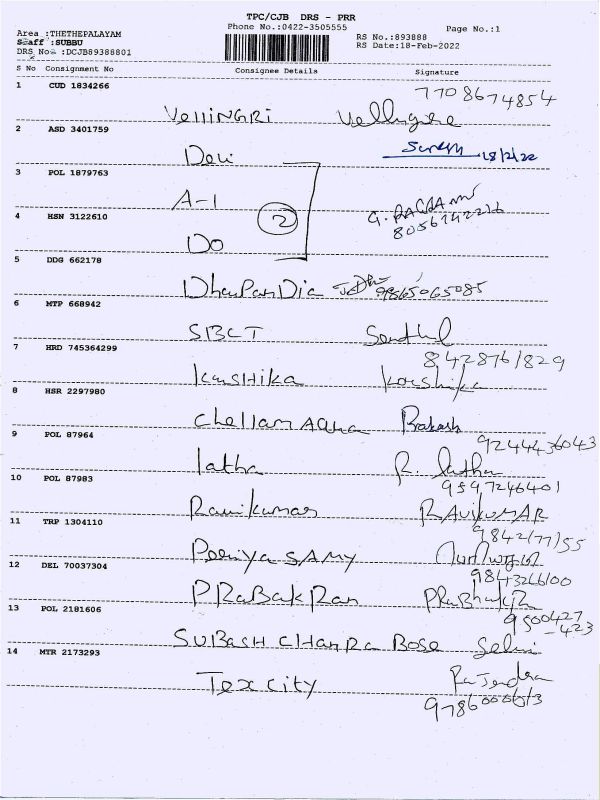 TPC/CJB DRS - PRR
Phone No.:0422-3505555
Page No.:1
Area :THETHEPALAYAM
Staff :SUBBU
DRS No :DCJB89388801
RS No.:893888
RS Date:18-Feb-2022
S No Consignment No Consignee Details Signature
7708674854
1 CUD 1834266
VellinGRi Vellingire
2 ASD 3401759
Devi Suresh 18/2/22
3 POL 1879763
A-1
4 HSN 3122610 2 G.
8056742226
Do
5 DDG 662178
DhanPanDia 9865065085
6 MTP 668942
SBCT Senthil
7 HRD 745364299 8428761829
KausHika Koushika
8 HSR 2297980
Chellam Prakash
9 POL 87964 9244436043
latha R. latha
10 POL 87983 9597246401
Ravikumar RAVIKUMAR
11 TRP 1304110 9842177155
PeriyaSAMY
12 DEL 70037304 9843266100
PRaBakRan PRaBhakaRan
13 POL 2181606 9500427
-423
SUBASH CHANRA BOSE Selvi
14 MTR 2173293
Tex City Rajendra